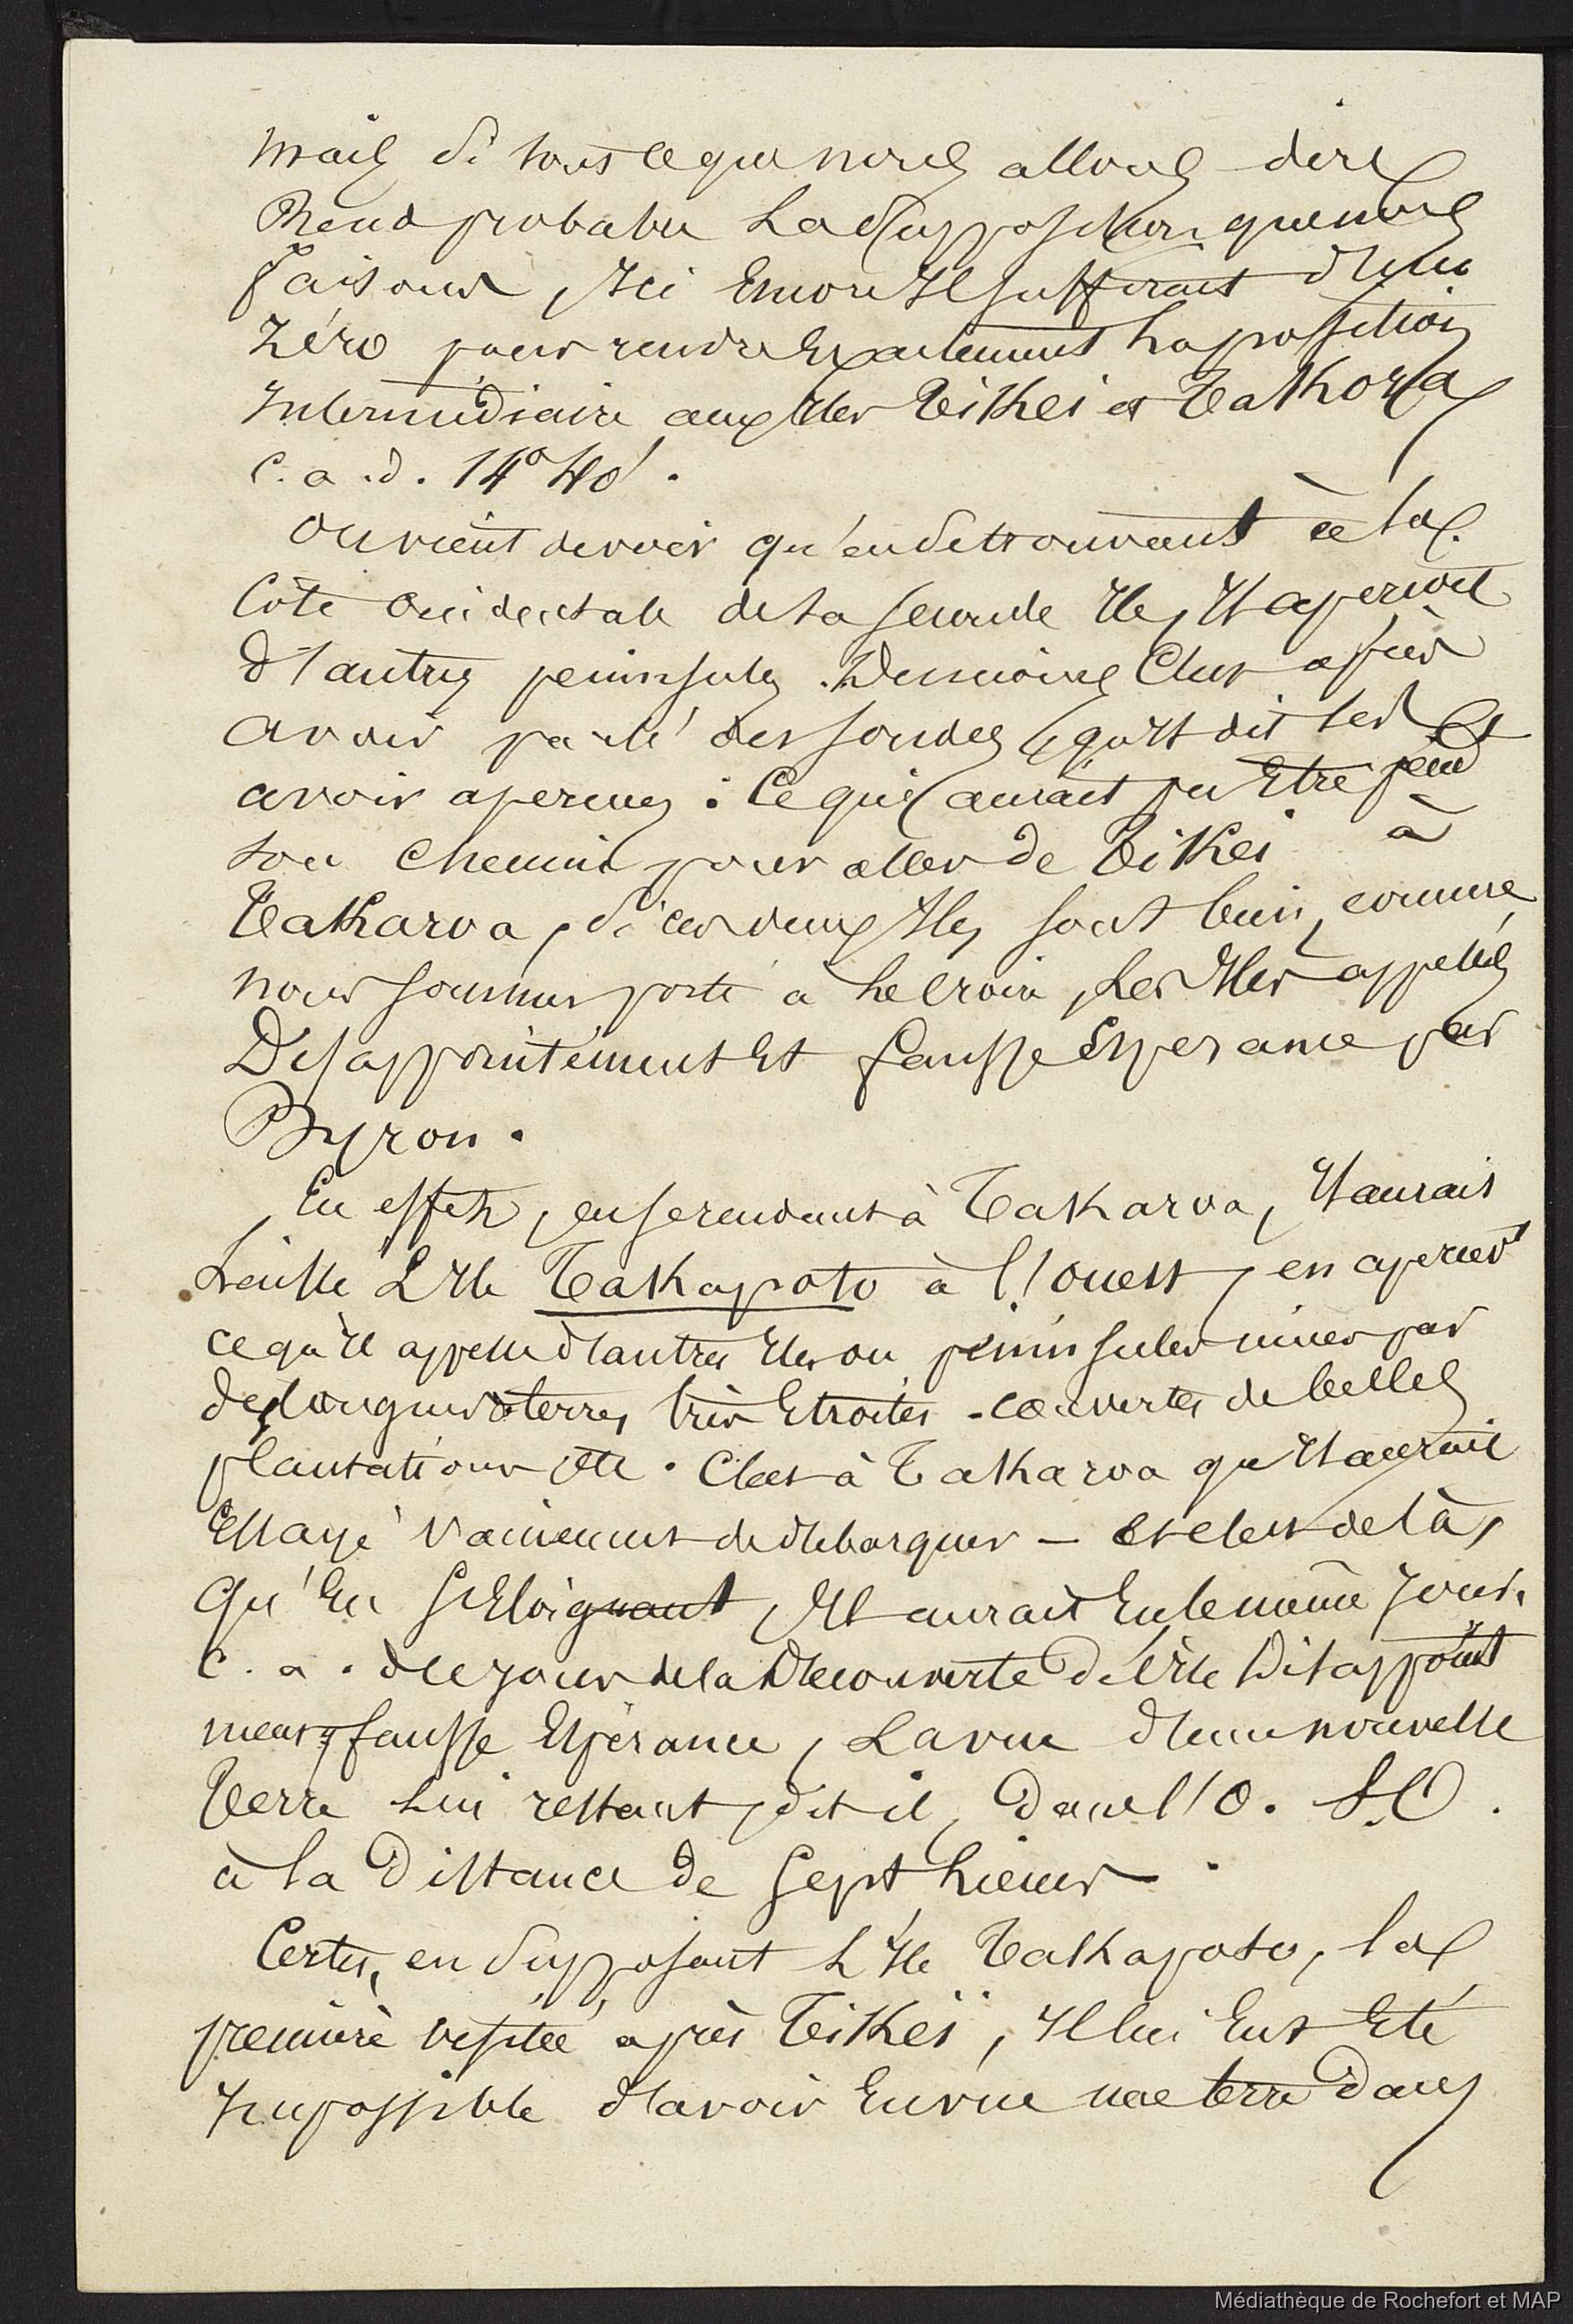 mais si tout ce que nous allons dire
Rend probable La Supposition que nous
faisons, Ici Encore Il suffirait d'un
Zéro pour rendre Exactement La position
Intermédiaire aux Iles Teikei et Takoroa
c. a. d. 14° 40'.
On vient de voir qu'en se trouvant à la
Côte Occidentale de la seconde Ile, Il aperçoit
d'autres peninsules. Dumoins C'est après
avoir parlé des sondes qu'Il dit les
avoir aperçues : Ce qui aurait pu Etre
son Chemin pour aller de Teikei à
Takaroa, si ces deux Iles sont bien, comme
nous sommes porté à Le Croire, Les Iles appelées
Desappointement Et fausse Esperance par
Byron.
En effet, en se rendant à Takaroa, Il aurais
Laissé L'Ile Takapoto à l'Ouest, en
ce qu'Il appelle d'autres Iles ou peninsules unies par
des langues de terres très Etroites - couvertes de belles
plantations etc. C'est à Takaroa qu'Il aurait
Essayé Vainement de débarquer - et c'est de là,
qu'En s'Eloignant, Il aurait Eu le même Jour.
c. a. d le jour de la Découverte de l'Ile Disappoint
ment, fausse Espérance, La vue d'une nouvelle
Terre Lui restant, dit il, dans l'O. S.O.
à la Distance de Sept Lieues.
Certes, en Supposant L'Ile Takapoto, la
première visitée après Teikeï, Il lui Eut Eté
Impossible d'avoir En vue une terre Dans
Médiathèque de Rochefort et MAP